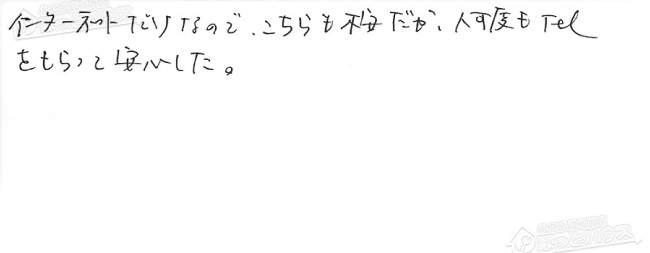 インターネットだけなので、こちらも不安だが、何度もTel
をもらって安心した。